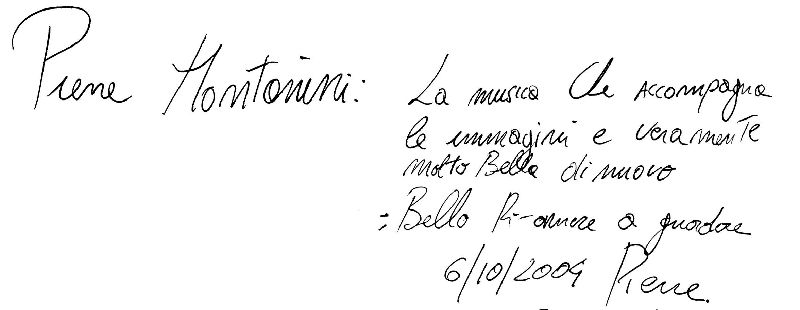 Pierre Montanini:
La musica che accompagna
le immagini e veramente
molto Bella di nuovo
: Bello a guardare
6/10/2004 Pierre.